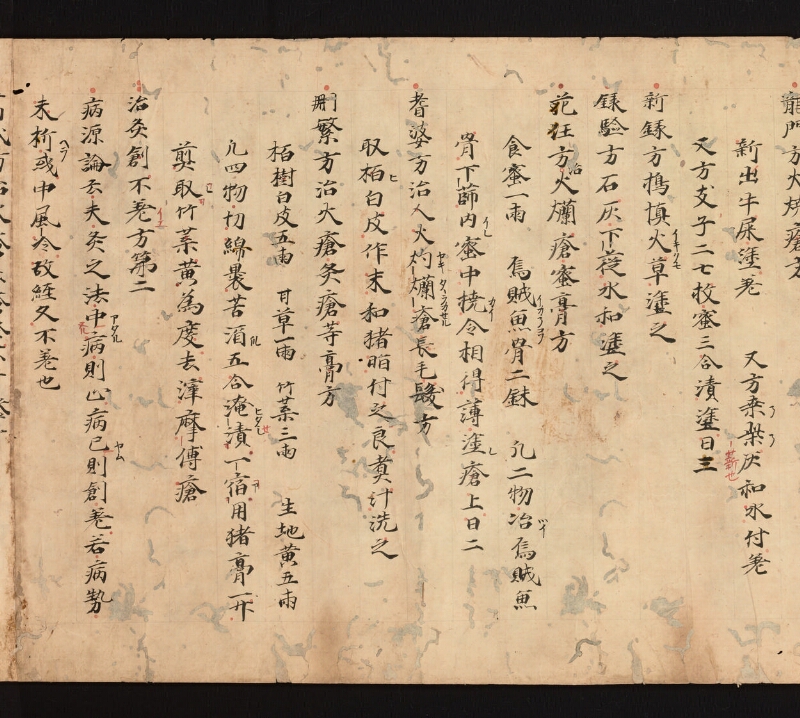 龍門方火燒瘡方
新出牛屎塗差　又方桒柴灰和水付差
又方支子二七枚蜜三合漬塗日三
新錄方擣慎火草塗之
錄驗方石灰下蓰水和塗之
范汪方治火爛瘡蜜膏方
食蜜一兩　烏賊魚骨二銖　凡二物冶烏賊魚
骨下蒒內蜜中撓令相得薄塗瘡上日二
耆婆方治人火灼爛瘡長毛髮方
取栢白皮作末和猪脂付之良煑汁洗之
刪繁方治火瘡灸瘡等膏方
栢樹白皮五兩　甘草一兩　竹葉三兩　生地黃五兩
凡四物切綿裹苦酒五合淹漬一宿用猪膏一升
煎取竹葉黃為度去滓摩傅瘡
治灸創不差方第二
病源論云夫灸之法中病則止病已則創差若病勢
未析或中風冷故經久不差也